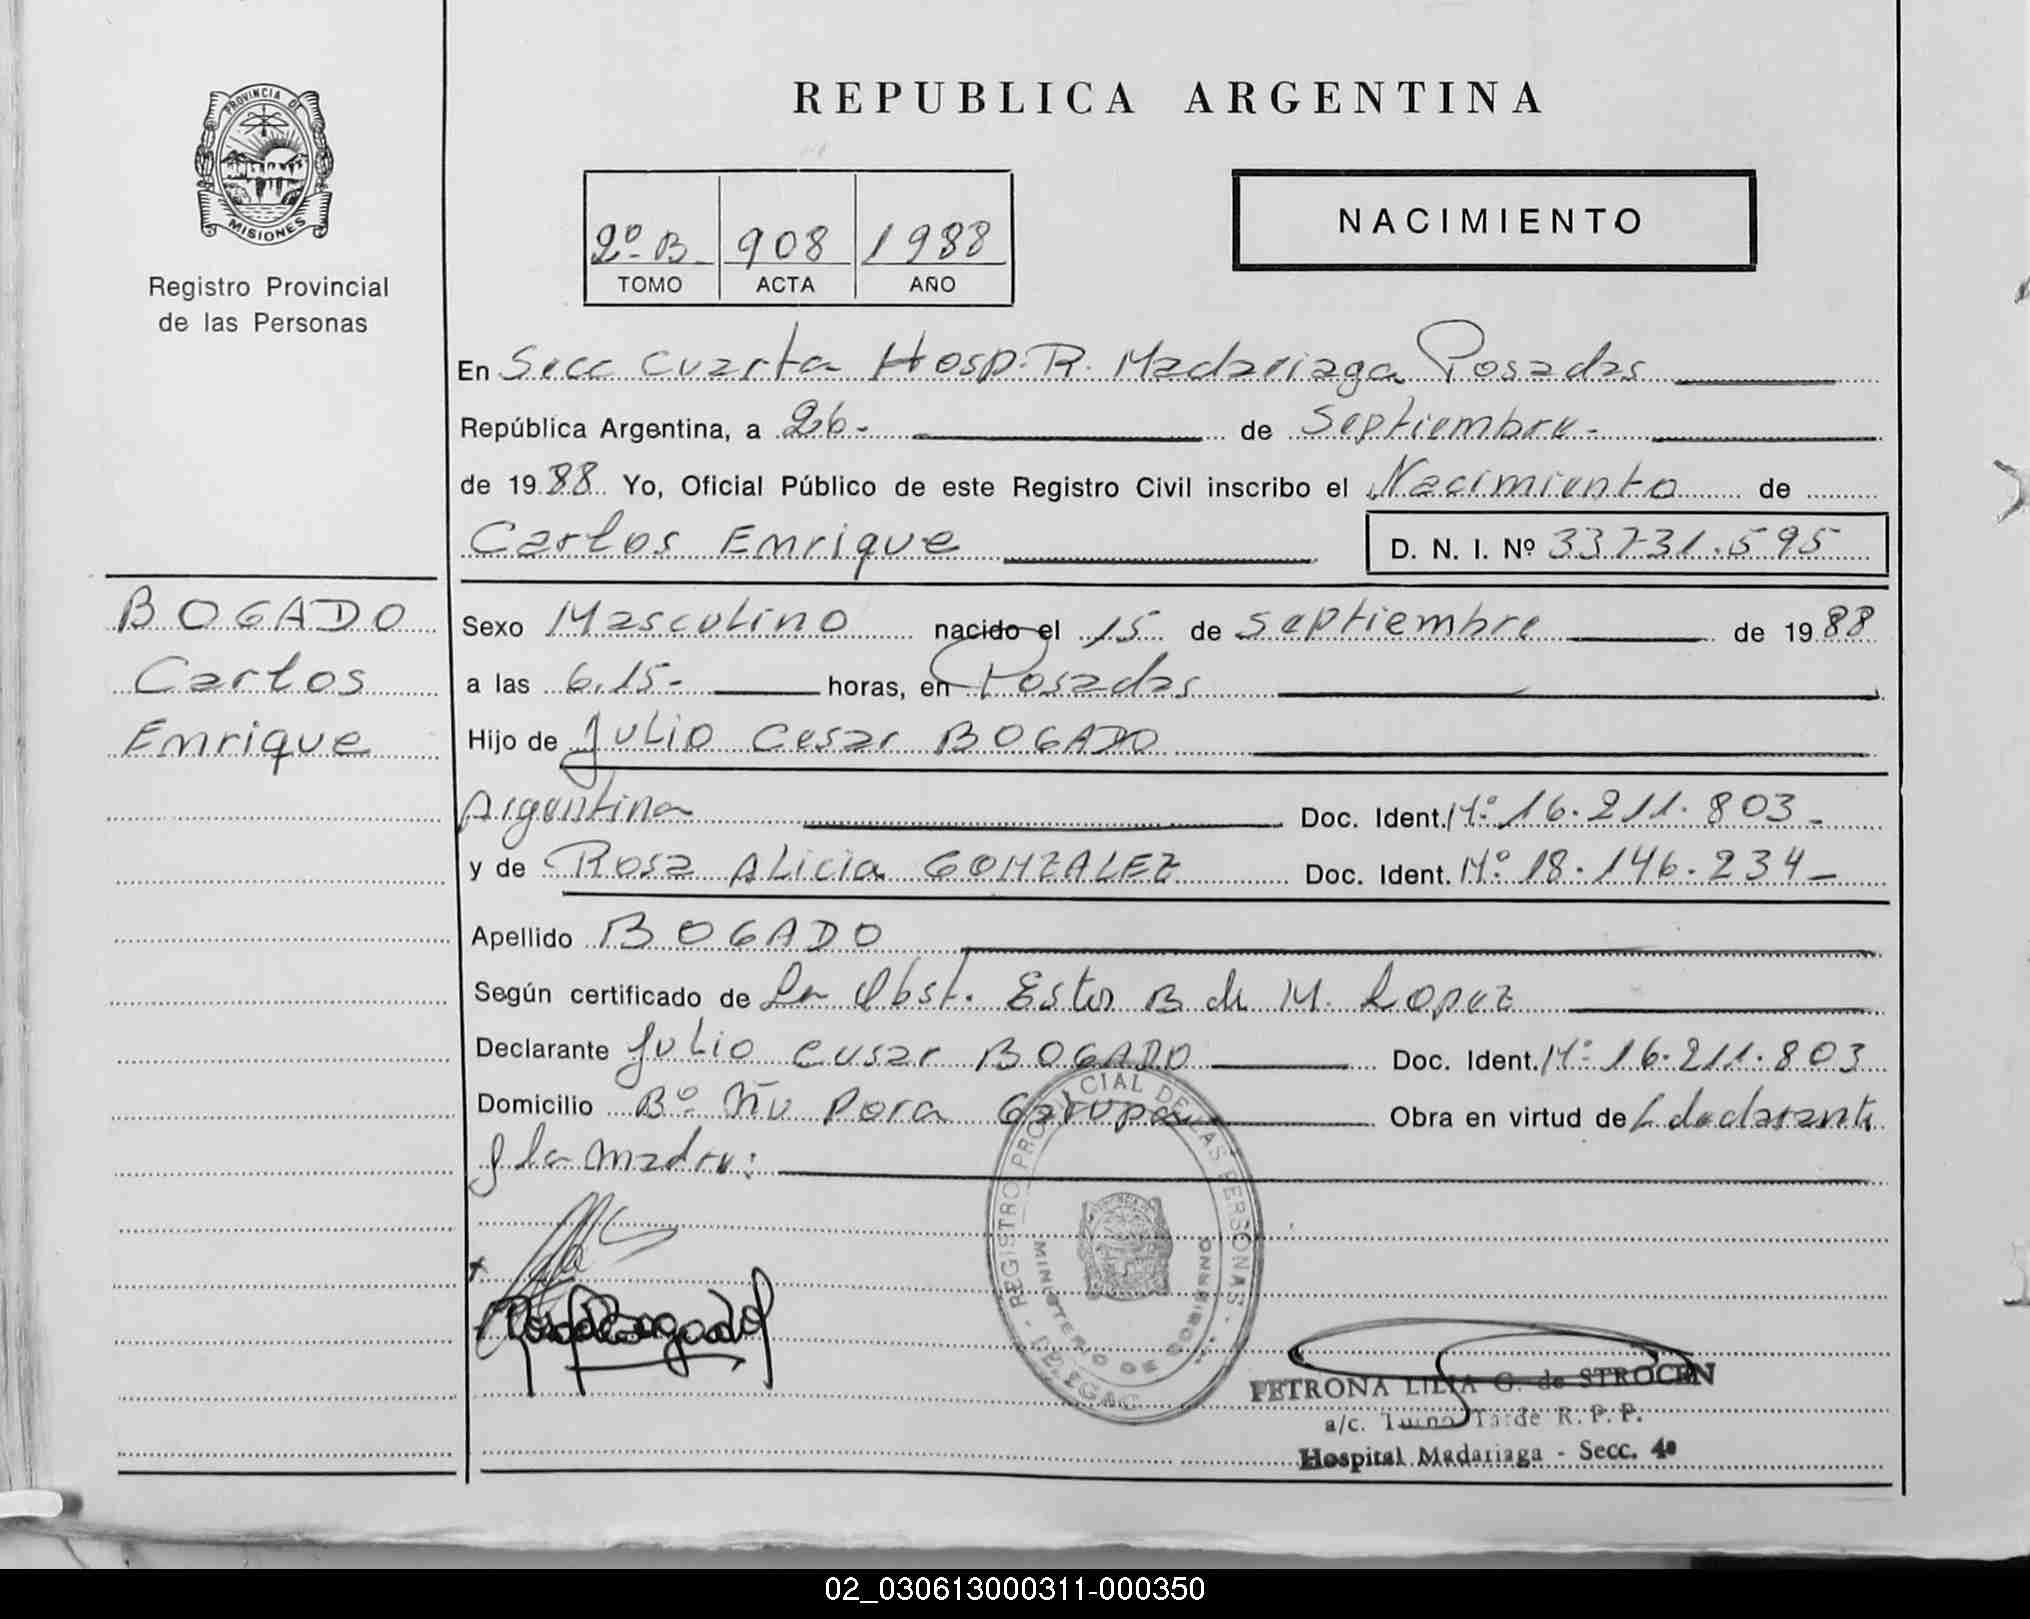 PROVINCIA DE
MISIONES
Registro Provincial
de las Personas
REPUBLICA ARGENTINA
2º B 908 1988
TOMO ACTA AÑO
NACIMIENTO
En Secc Cuarta Hosp. R. Madariaga Posadas
República Argentina, a 26- de Septiembre-
de 1988 Yo, Oficial Público de este Registro Civil inscribo el Nacimiento de
Carlos Enrique D. N. I. Nº 33731.595
BOGADO
Carlos
Enrique
Sexo Masculino nacido el 15 de septiembre de 1988
a las 6.15- horas, en Posadas
Hijo de Julio Cesar BOGADO
Argentina Doc. Ident. Mº 16.211.803-
y de Rosa Alicia GONZALEZ Doc. Ident. Mº 18.146.234-
Apellido BOGADO
Según certificado de La Obst. Ester B de M. Lopez
Declarante Julio Cesar BOGADO Doc. Ident. Mº 16.211.803
Domicilio Bº Ñu Pora Garupa Obra en virtud de L declarante
y la madre:
REGISTRO PROVINCIAL DE LAS PERSONAS
MINISTERIO DE GOBIERNO
DELEGAC
PETRONA LILIA G. de STROCEN
a/c. Turno Tarde R. P. P.
Hospital Madariaga - Secc. 4ª
02_030613000311-000350